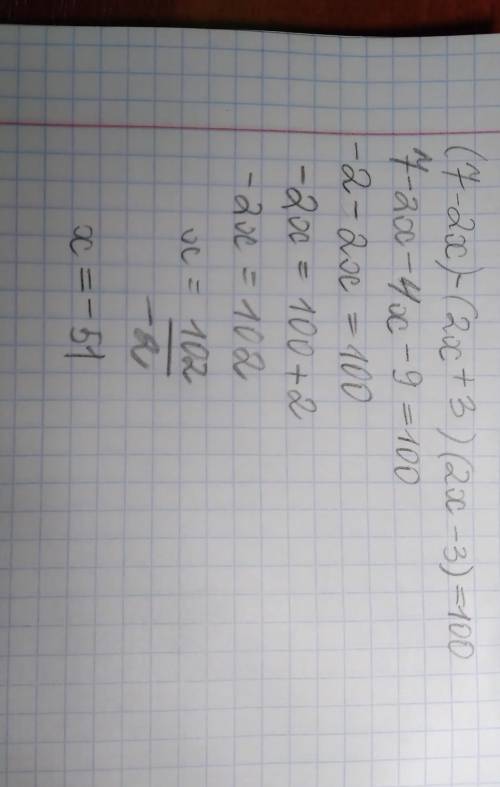 (7-2x)-(2x+3)(2x-3)=100
7-2x-4x-9=100
-2-2x=100
-2x=100+2
-2x=102
x=102/-2
x=-51